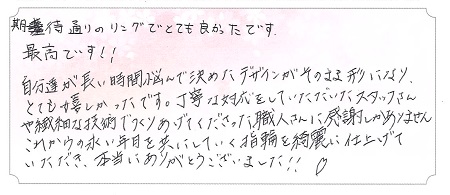 期待通りのリングでとても良かったです。
最高です!!
自分達が長い時間悩んで決めたデザインがそのまま形になり、
とても嬉しかったです。丁寧な対応をしていただいたスタッフさん
や繊細な技術でつくりあげてくださった職人さんに感謝しかありません
これからの永い年月を共にしていく指輪を綺麗に仕上げて
いただき、本当にありがとうございました!!